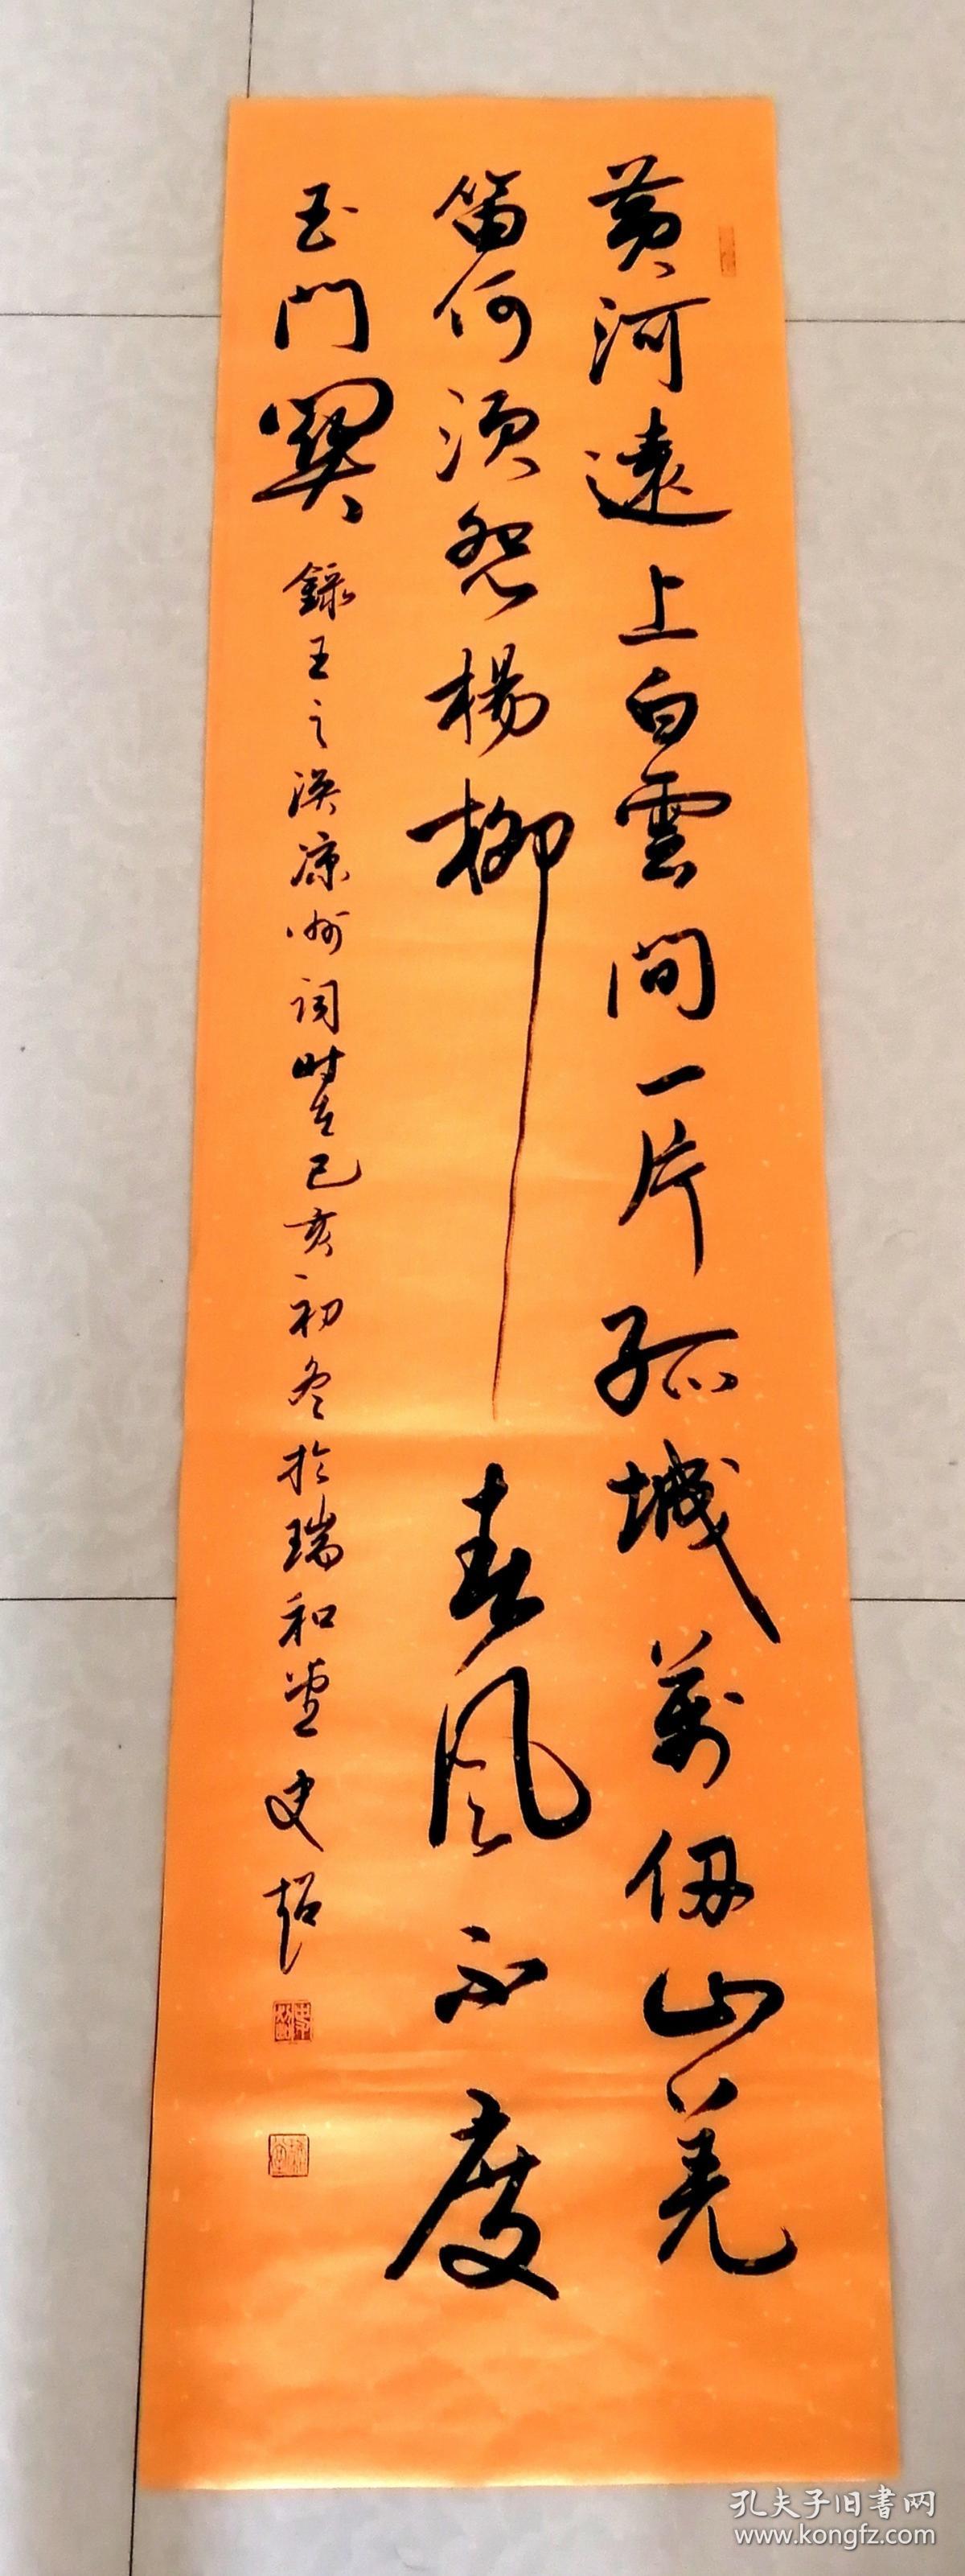 黄河遠上白雲间一片孤城萬仞山羌
笛何须怨楊柳春風不度
玉门関
錄王之涣凉州词时在己亥初冬於瑞和堂史超
孔夫子旧書网
www.kongfz.com